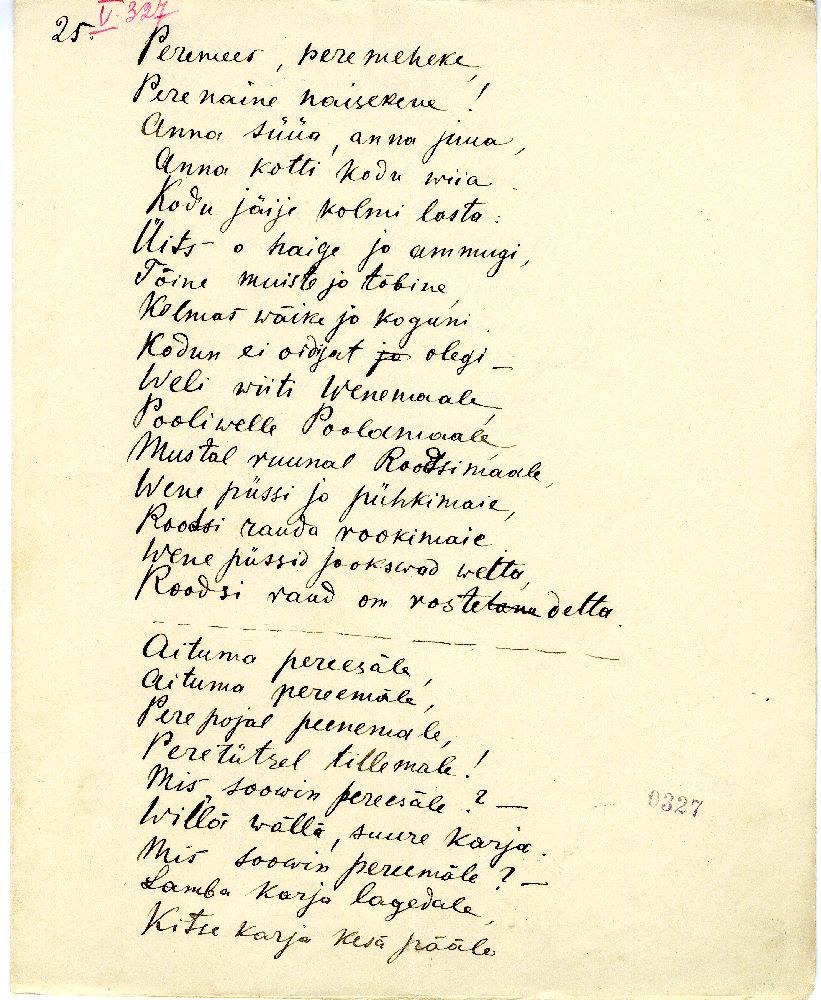 25. V. 327
Peremees, peremeheke,
Perenaine naisekene!
Anna süüa, anna juua,
Anna kotti kodu wiia.
Kodu jäije kolmi lasta:
Üits o haige jo ammugi,
Tõine muiste jo tõbine,
Kolmas wäike jo koguni.
Kodun ei oidjat ja olegi –
Weli wiiti Wenemaale,
Pooliwelle Poolamaale,
Mustal ruunal Roodsimaale,
Wene püssi jo pühkimaie,
Roodsi rauda rookimaie.
Wene püssid jookswad wetta,
Roodsi raud om rostetanu detta.
Aituma pereesäle,
Aituma pereemäle,
Perepojal peenemale,
Peretütrel tillemale!
Mis soowin pereesäle? –
Willä wällä, suure karja.
Mis soowin pereemäle? –
Lamba karja lagedale,
Kitse karja kesä pääle
0327